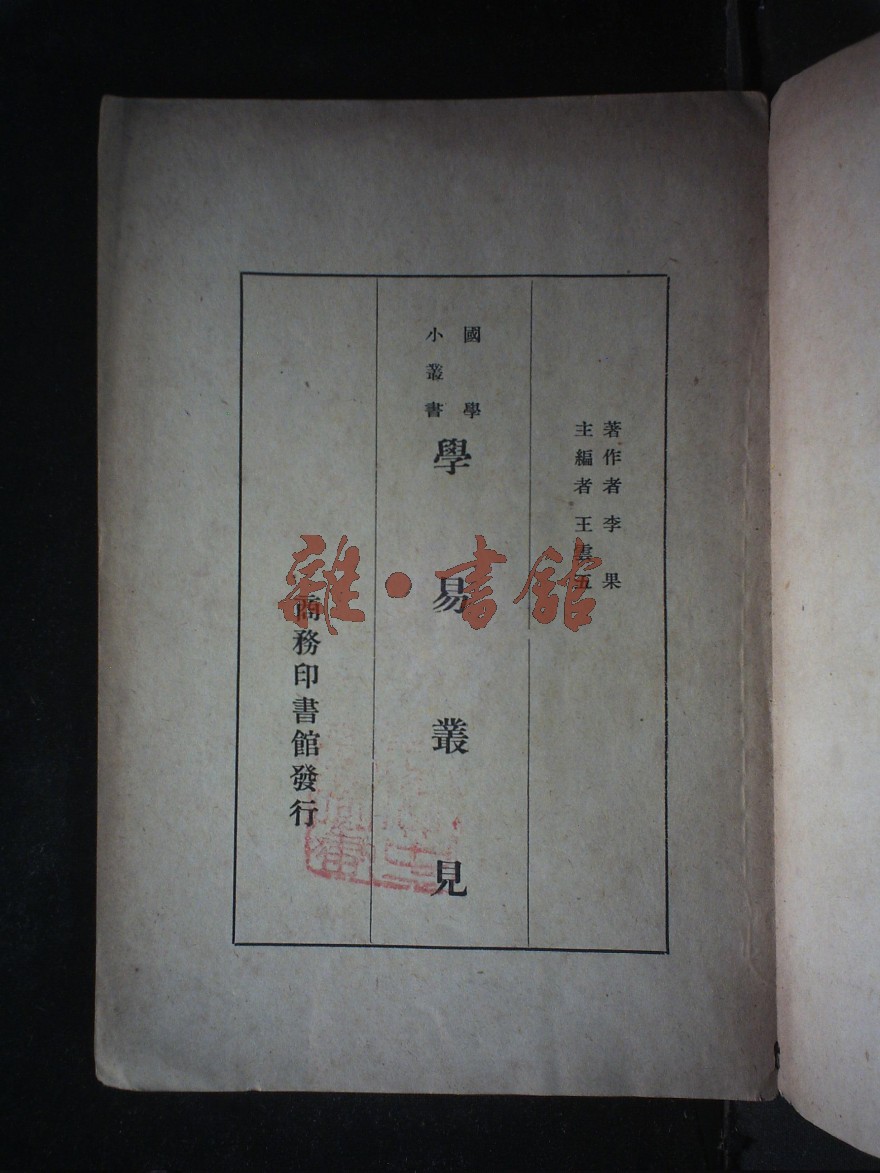 著作者 李果
主編者 王雲五
國學
小叢書
學易叢見
商務印書館發行
雜·書館